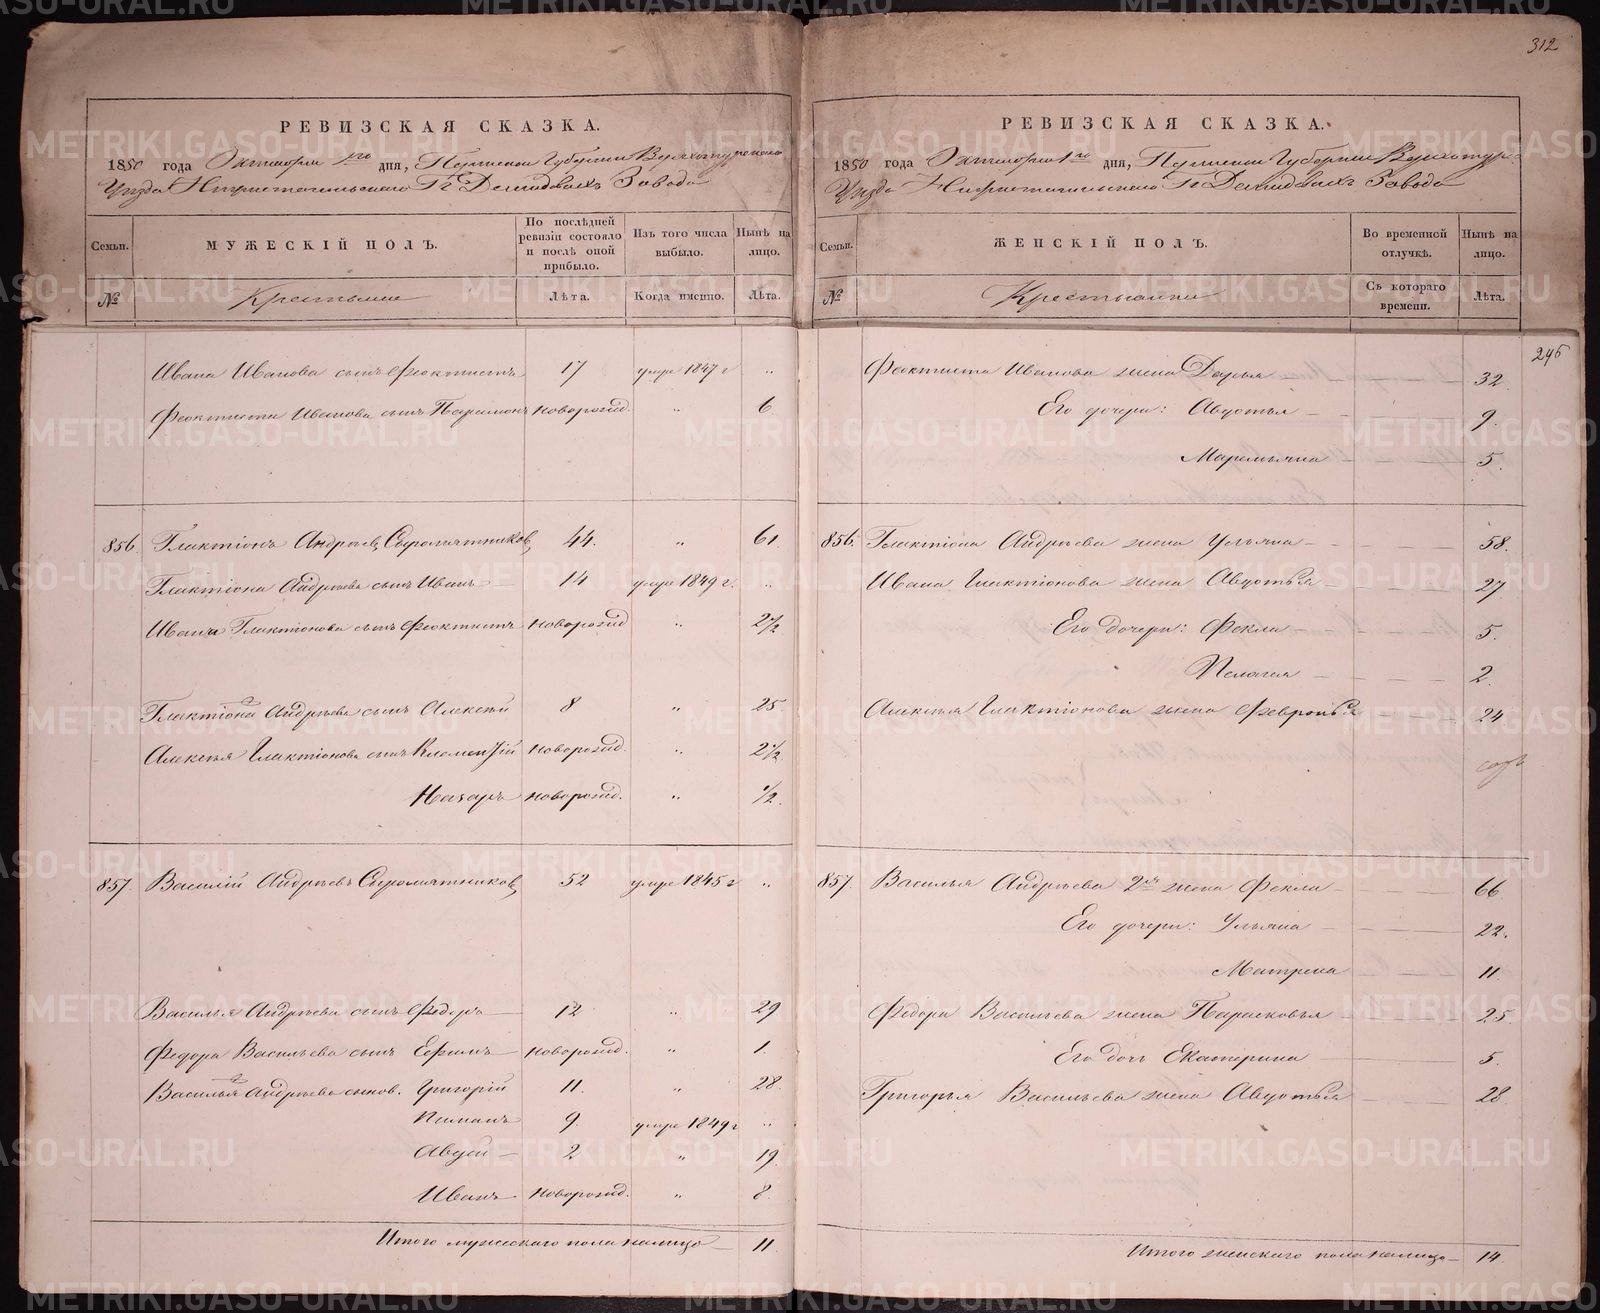 312
РЕВИЗСКАЯ СКАЗКА.
1850 года Октября 1го дня, Пермской Губернии Верхотурскаго
Уезда Нижнетагильскаго Гг. Демидовыхъ Завода
Семьи. МУЖЕСКІЙ ПОЛЪ. По послѣдней ревизіи состояло и послѣ оной прибыло. Изъ того числа выбыло. Нынѣ на лицо.
№ Крестьяне Лѣта. Когда именно. Лѣта.
Ивана Иванова сынъ Феоктистъ 17 умре 1847 г "
Феоктиста Иванова сынъ Парамонъ новорожд. " 6
856. Галактіонъ Андреевъ Сыромятниковъ 44. " 61
Галактіона Андреева сынъ Иванъ 14 умре 1849 г. "
Ивана Галактіонова сынъ Феоктистъ новорожд " 2 1/2
Галактіона 2 Андреева сынъ Алексѣй 8 " 25
Алексѣя Галактіонова сынъ Клементій новорожд. " 2 1/2
Назаръ новорожд. " 1/2
857. Василій Андреевъ Сыромятниковъ 52 умре 1845 г "
Василья Андреева сынъ Федоръ 12 " 29
Федора Васильева сынъ Ефимъ новорожд. " 1.
Василья 2 Андреева сынов. Григорій 11. " 28.
Пиманъ 9. умре 1849 г "
Авдей 2 " 19.
Иванъ новорожд. " 8.
Итого мужескаго пола налицо 11
РЕВИЗСКАЯ СКАЗКА.
1850 года Октября 1го дня, Пермской Губернии Верхотур.
Уезда Нижнетагильскаго Гг. Демидовыхъ Завода
Семьи. ЖЕНСКІЙ ПОЛЪ. Во временной отлучкѣ. Нынѣ на лицо.
№ Крестьянки Съ котораго времени. Лѣта.
246
Феоктиста Иванова жена Дарья 32.
Его дочери: Авдотья 9.
Маремьяна 5.
856. Галактіона Андреева жена Ульяна 58.
Ивана Галактіонова жена Авдотья 27
Его дочери: Фекла 5.
Пелагея 2.
Алексѣя Галактіонова жена Февронья 24
857. Василья Андреева 2ая жена Фекла 66
Его дочери: Ульяна 22.
Матрена 11
Федора Васильева жена Парасковья 25.
Его дочь Екатерина 5.
Григорья Васильева жена Авдотья 28
Итого женскаго пола налицо 14.
METRIKI.GASO-URAL.RU